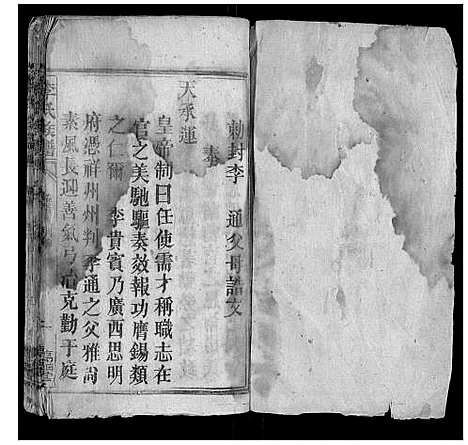 勅封李 通父母誥文
奉
天承運
皇帝制曰任使需才稱職志在
官之美馳驅奏效報功膺錫類
之仁爾 李貴賓乃廣西思明
府憑祥州州判李通之父雅尚
素風長迎善氣弓冶克勤于庭
李氏族譜